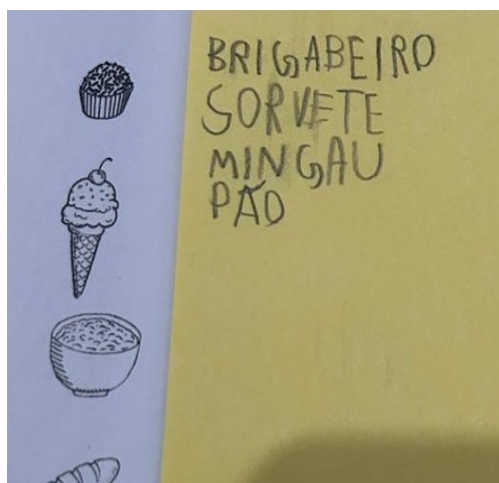 BRIGABEIRO
SORVETE
MINGAU
PÃO